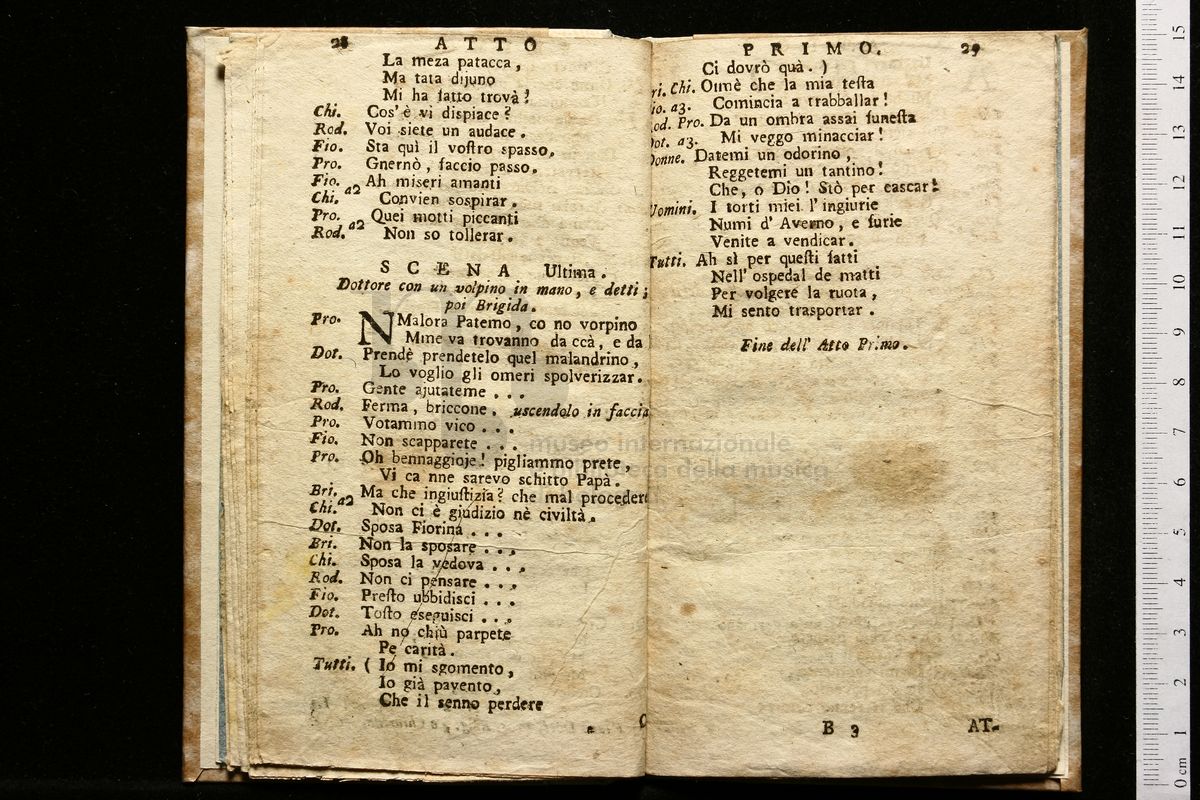 28 ATTO
La meza patacca,
Ma tata dijuno
Mi ha fatto trovà!
Chi. Cos' è vi dispiace?
Rod. Voi siete un audace.
Fio. Sta quì il vostro spasso,
Pro. Gnernò, faccio passo.
Fio. a2 Ah miseri amanti
Chi. Convien sospirar.
Pro. a2 Quei motti piccanti
Rod. Non so tollerar.
SCENA Ultima.
Dottore con un volpino in mano, e detti;
poi Brigida.
Pro. NMalora Patemo, co no vorpino
Mme va trovanno da ccà, e da
Dot. Prendè prendetelo quel malandrino,
Lo voglio gli omeri spolverizzar.
Pro. Gente ajutateme ...
Rod. Ferma, briccone. uscendolo in faccia
Pro. Votammo vico ...
Fio. Non scapparete ...
Pro. Oh bennaggioje! pigliammo prete,
Vi ca nne sarevo schitto Papà.
Bri. a2 Ma che ingiustizia? che mal procedere
Chi. Non ci è giudizio nè civiltà.
Dot. Sposa Fiorina ...
Bri. Non la sposare ...
Chi. Sposa la vedova ...
Rod. Non ci pensare ...
Fio. Presto ubbidisci ...
Dot. Tosto eseguisci ...
Pro. Ah no chiù parpete
Pe carità.
Tutti. ( Io mi sgomento,
Io già pavento,
Che il senno perdere
PRIMO. 29
Ci dovrò quà. )
ri. Chi. Oimè che la mia testa
io. a3. Comincia a traballar!
od. Pro. Da un ombra assai funesta
ot. a3. Mi veggo minacciar!
Donne. Datemi un odorino,
Reggetemi un tantino!
Che, o Dio! Stò per cascar!
Uomini. I torti miei l' ingiurie
Numi d' Averno, e furie
Venite a vendicar.
Tutti. Ah sì per questi fatti
Nell' ospedal de matti
Per volgere la ruota,
Mi sento trasportar.
Fine dell' Atto Primo.
B 3 AT-
museo internazionale
biblioteca della musica
15
14
13
12
11
10
9
8
7
6
5
4
3
2
1
0 cm